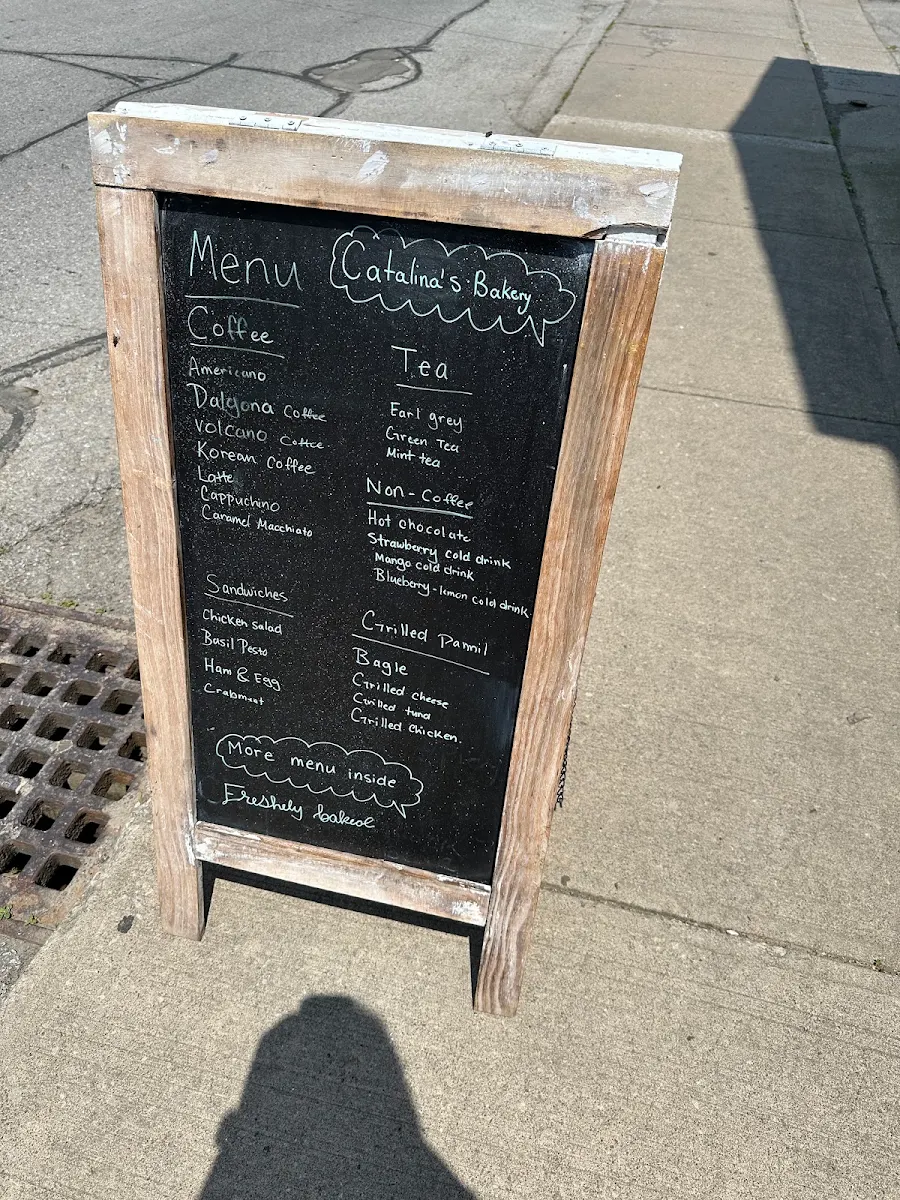 Menu
Catalina's Bakery
Coffee
Americano
Dalgona Coffee
Volcano Coffee
Korean Coffee
Latte
Cappuchino
Caramel Macchiato
Tea
Earl grey
Green Tea
Mint tea
Non-Coffee
Hot chocolate
Strawberry cold drink
Mango cold drink
Blueberry-lemon cold drink
Sandwiches
Chicken salad
Basil Pesto
Ham & Egg
Crabmeat
Grilled Pannil
Bagle
Grilled cheese
Grilled tuna
Grilled chicken.
More menu inside
Freshely baked